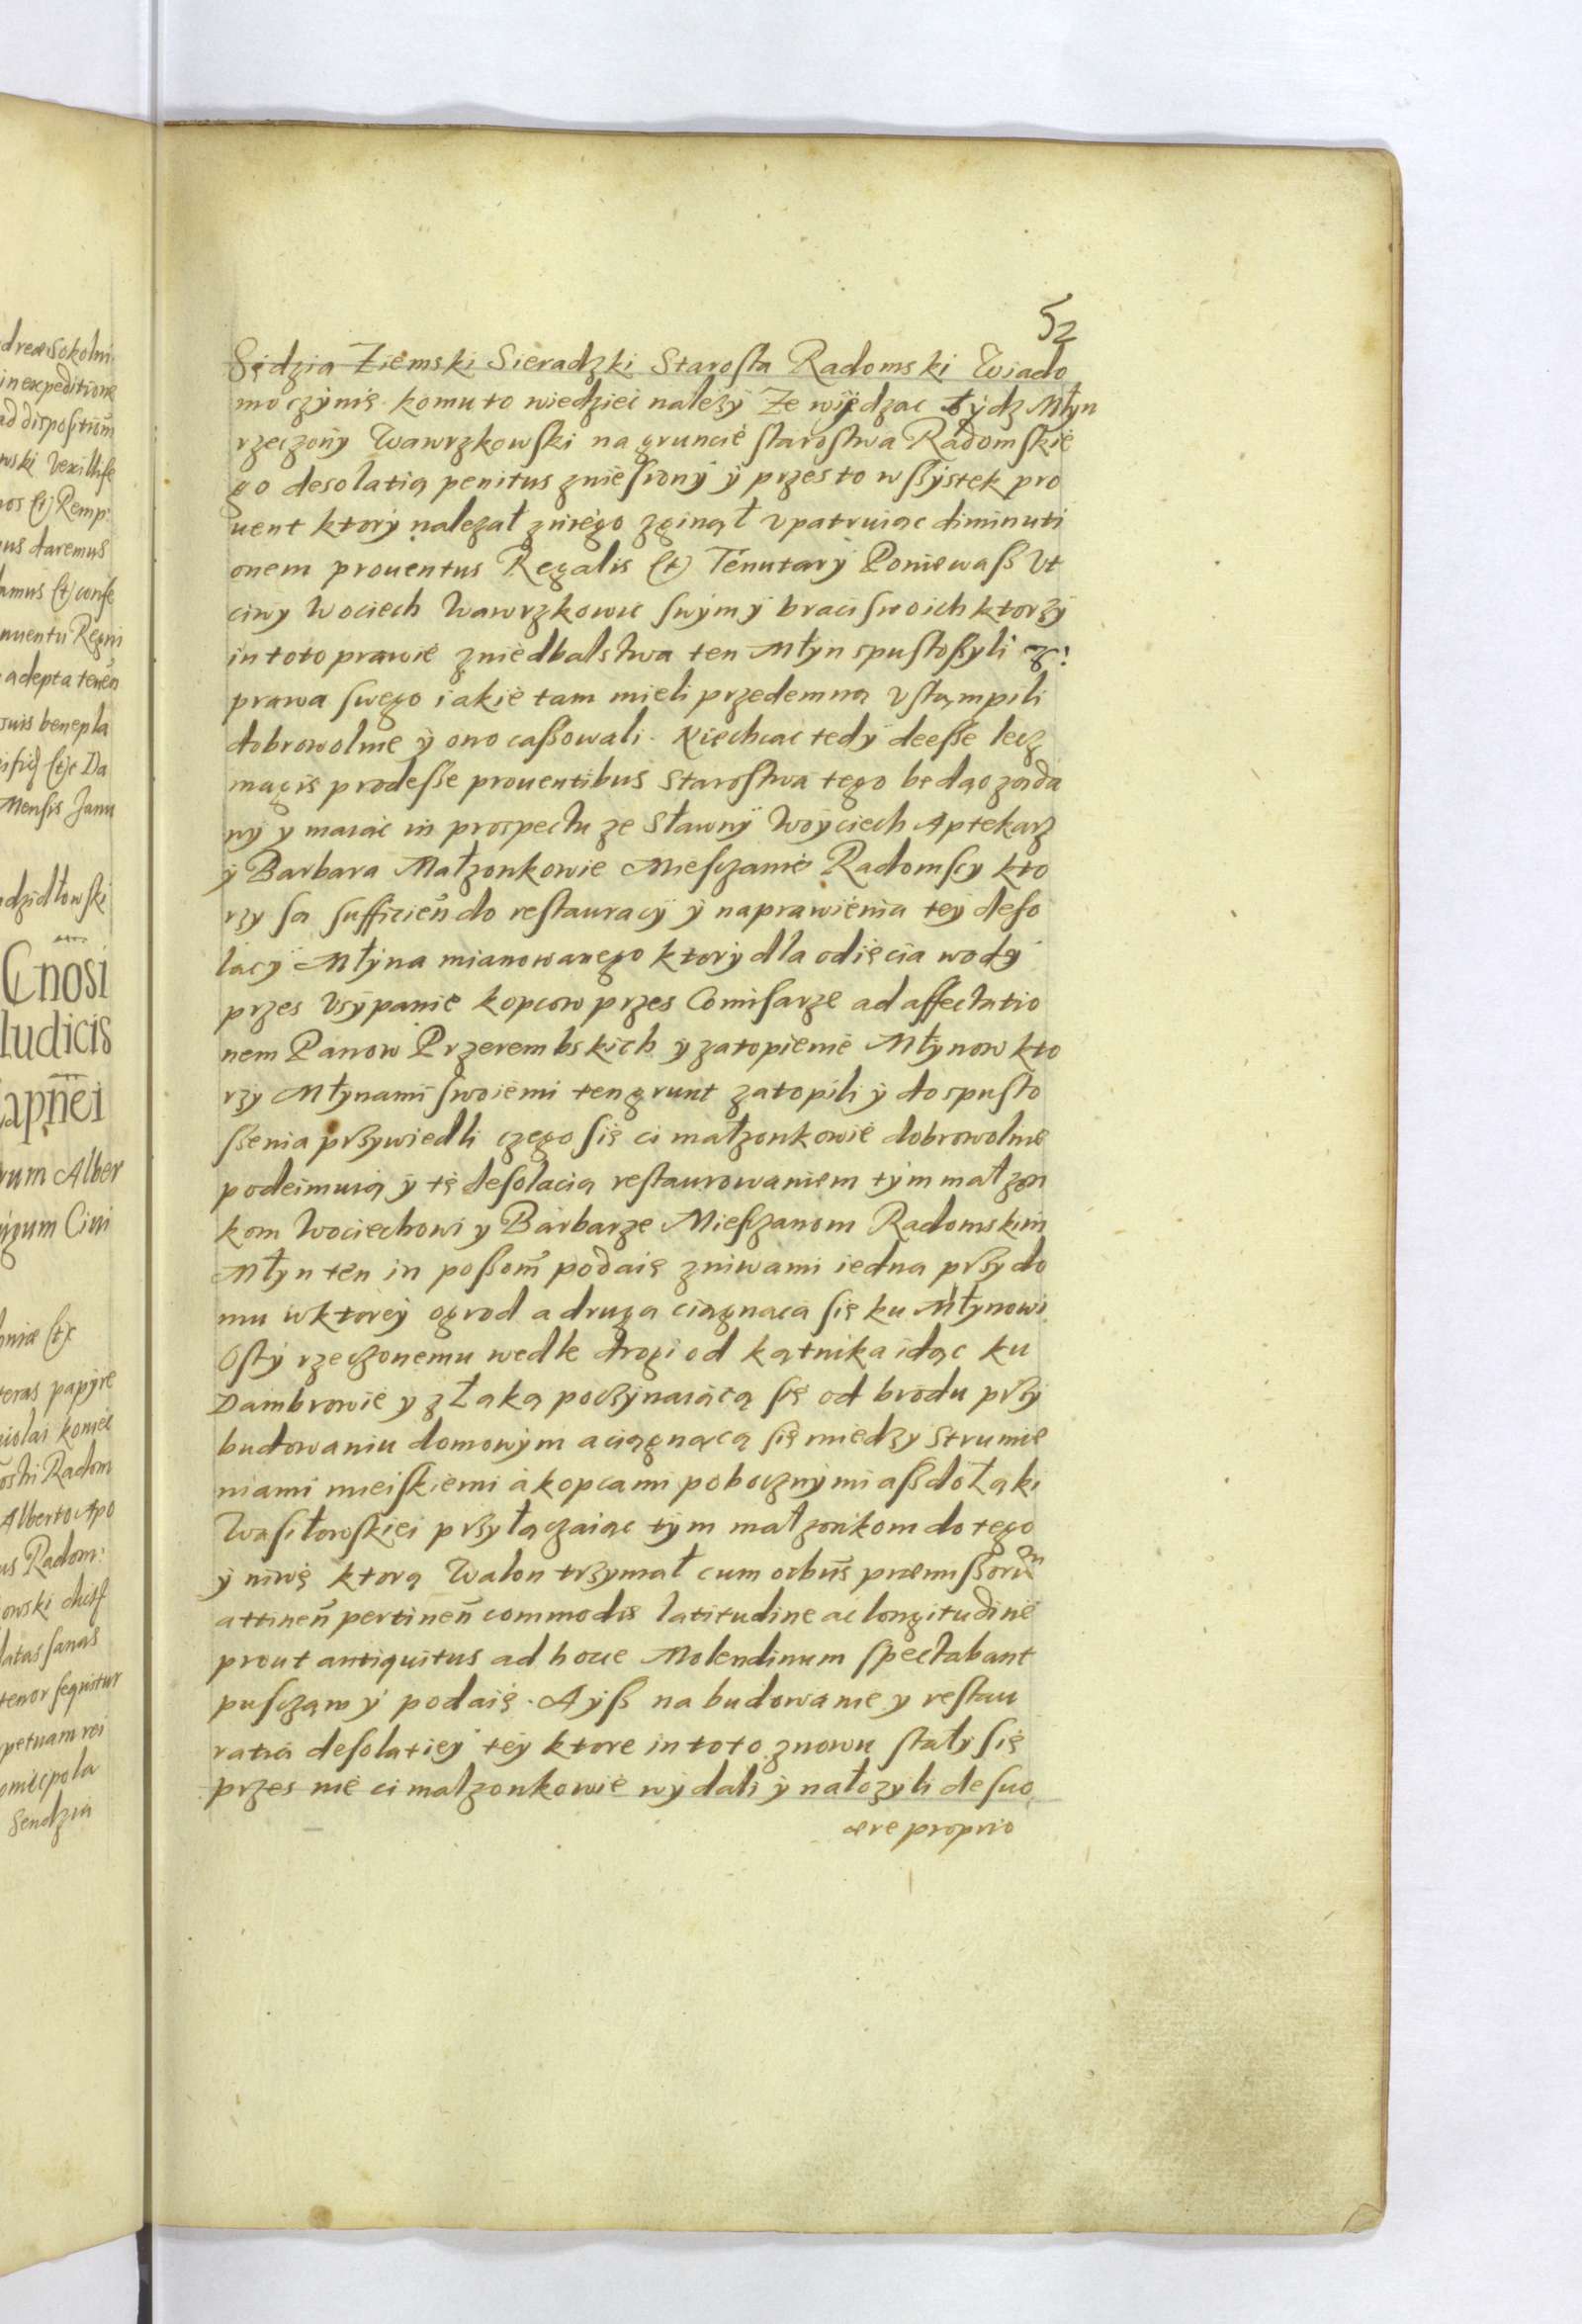 52
Sędzia Ziemski Sieradzki Starosta Radomski Wiado
mo czÿnię komu to wiedzieć należÿ Ze Młyn
rzeczonÿ Wawrzkowski na gruncie starostwa Radomskie
go desolatią penitus zniesionÿ ÿ przes to wssÿstek pro
uent ktorÿ nalezał zniego zginął vpatruiąc diminuti
onem prouentus Regalis et Tenutarÿ Poniewass Vt
ciwÿ Wociech Wawrzkowic swÿmÿ braci swoich ktorzÿ
in toto prawie zniedbalstwa ten Młyn spustossyli
prawa swego iakie tam mieli przedemną vstąmpili
dobrowolnie ÿ ono cassowali. Niechcac tedÿ deesse lecz
magis prodesse prouentibus Starostwa tego bedąc
nÿ y maiąc in prospectu ze Sławnÿ Woÿciech Aptekarz
ÿ Barbara Małzonkowie Miesczanie Radomscy kto
rzy sa sufficien̄ do restauracÿ ÿ naprawienia teÿ deso
lacÿ Młÿna mianowanego ktorÿ dla odięcia wodÿ
przes vsÿpanie kopcow przes Comisarze ad affectatio
nem Panow Przerembskich ÿ zatopienie Młÿnow kto
rzy Młÿnami swoiemi ten grunt zatopili ÿ do spusto
ssenia przÿwiedli czego się ci małzonkowie dobrowolnie
podeimuią ÿ tę desolacią restaurowaniem tÿm małzon
kom Wociechowi y Barbarze Miesczanom Radomskim
Młÿn ten in possom̄ podaię zniwami iedna przÿ do
mu w ktoreÿ ogrod a druga ciągnaca się ku Młÿnowi
Ostÿ rzeczonemu wedle drogi od kątnika idąc ku
Dambrowie y z Łaką poczÿnaiącą się od brodu przÿ
budowaniu domowÿm a ciągnącą się miedzy strumie
niami mieiskiemi a kopcami pobocznÿmi ass do Łąki
Wasiłowskiei przÿłączaiąc tÿm małzonkom do tego
ÿ niwę ktorą Walon trzymał cum oıbus̄ præmissorum
attinen̄ pertinen̄ commodis latitudine ac longitudine
prout antiquitus ad hocce Molendinum spectabant
pusczam ÿ podaię. Aÿss na budowanie y restau
ratią desolatieÿ teÿ ktore in toto znowu stały się
przes nie ci małzonkowie wÿdali ÿ nałozÿli de suo
ære proprio